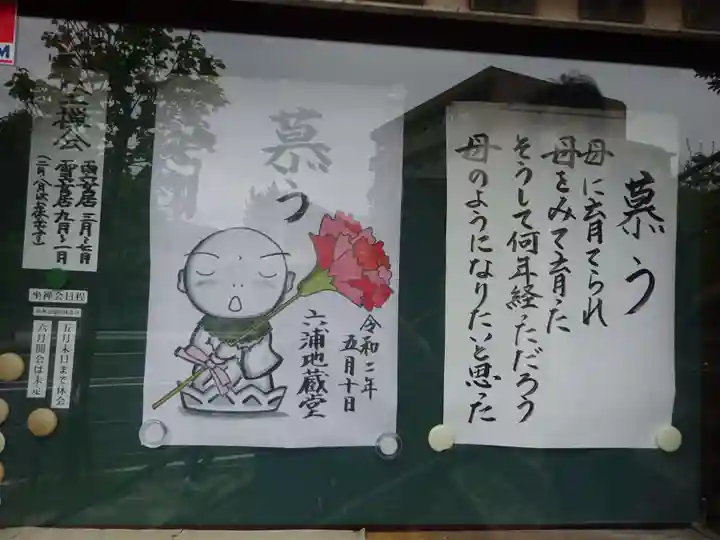 慕う
母に育てられ
母をみて育った
そうして何年経っただろう
母のようになりたいと思った
慕う
令和二年
五月十日
六浦地蔵堂
坐禅会
雨安居 三月〜七月
雪安居 九月〜一月
坐禅会日程
五月末日まで休会
六月開会は未定